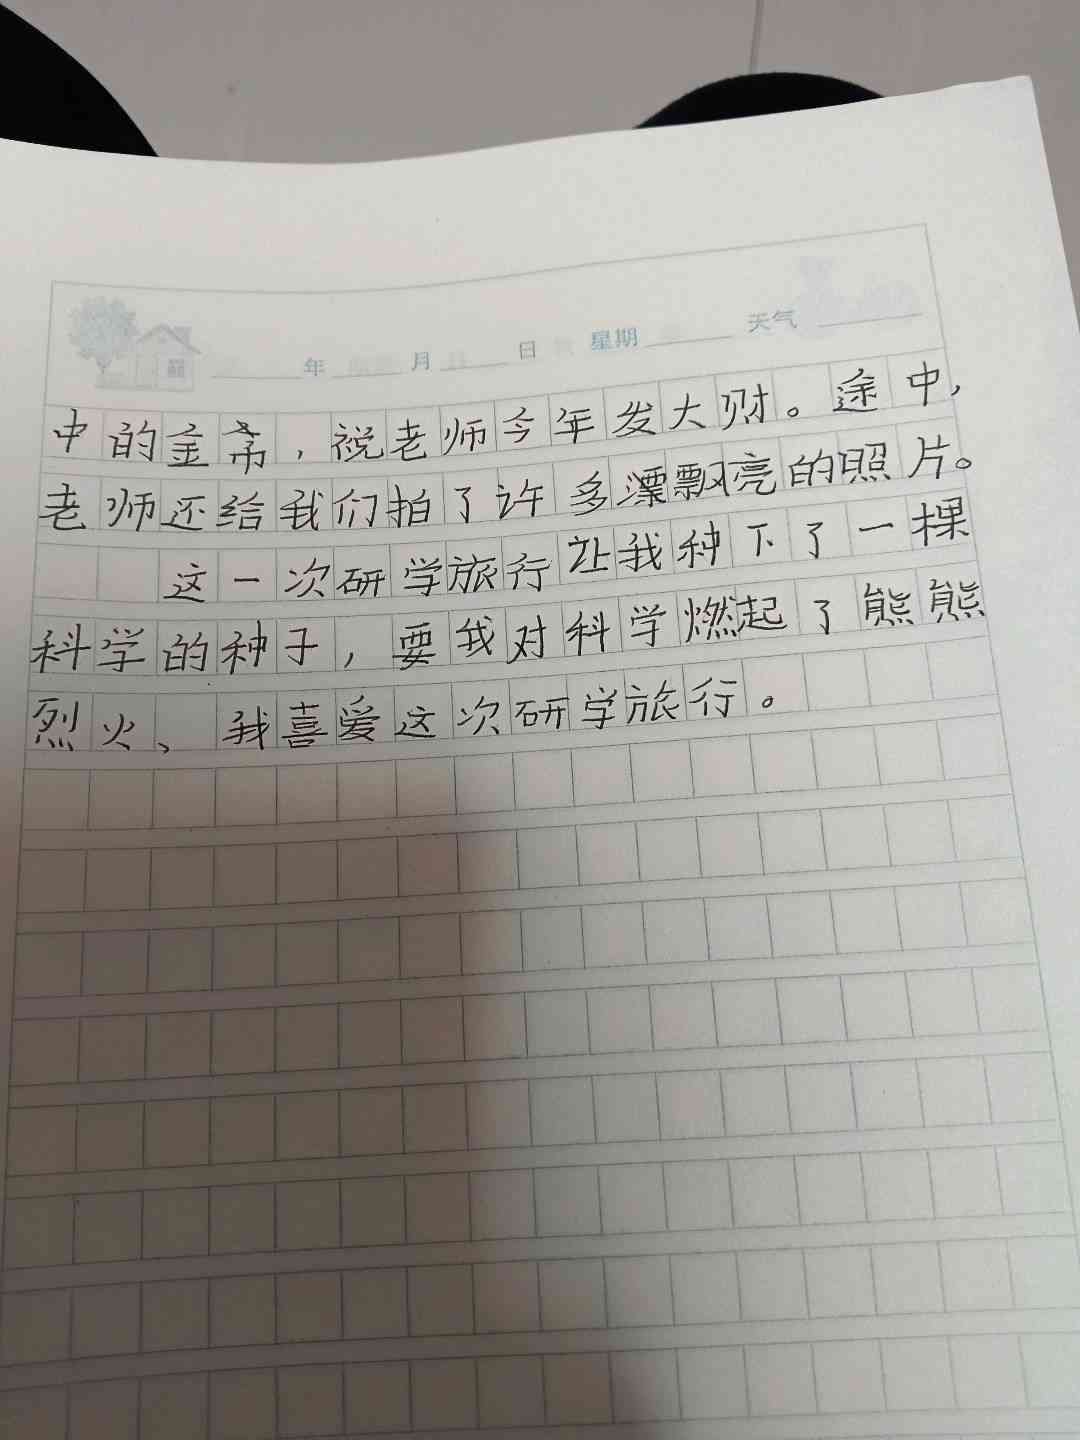 年 月 日 星期 天气
中的金币，祝老师今年发大财。途中，
老师还给我们拍了许多漂飘亮的照片。
这一次研学旅行让我种下了一棵
科学的种子，要我对科学燃起了熊熊
烈火、我喜爱这次研学旅行。